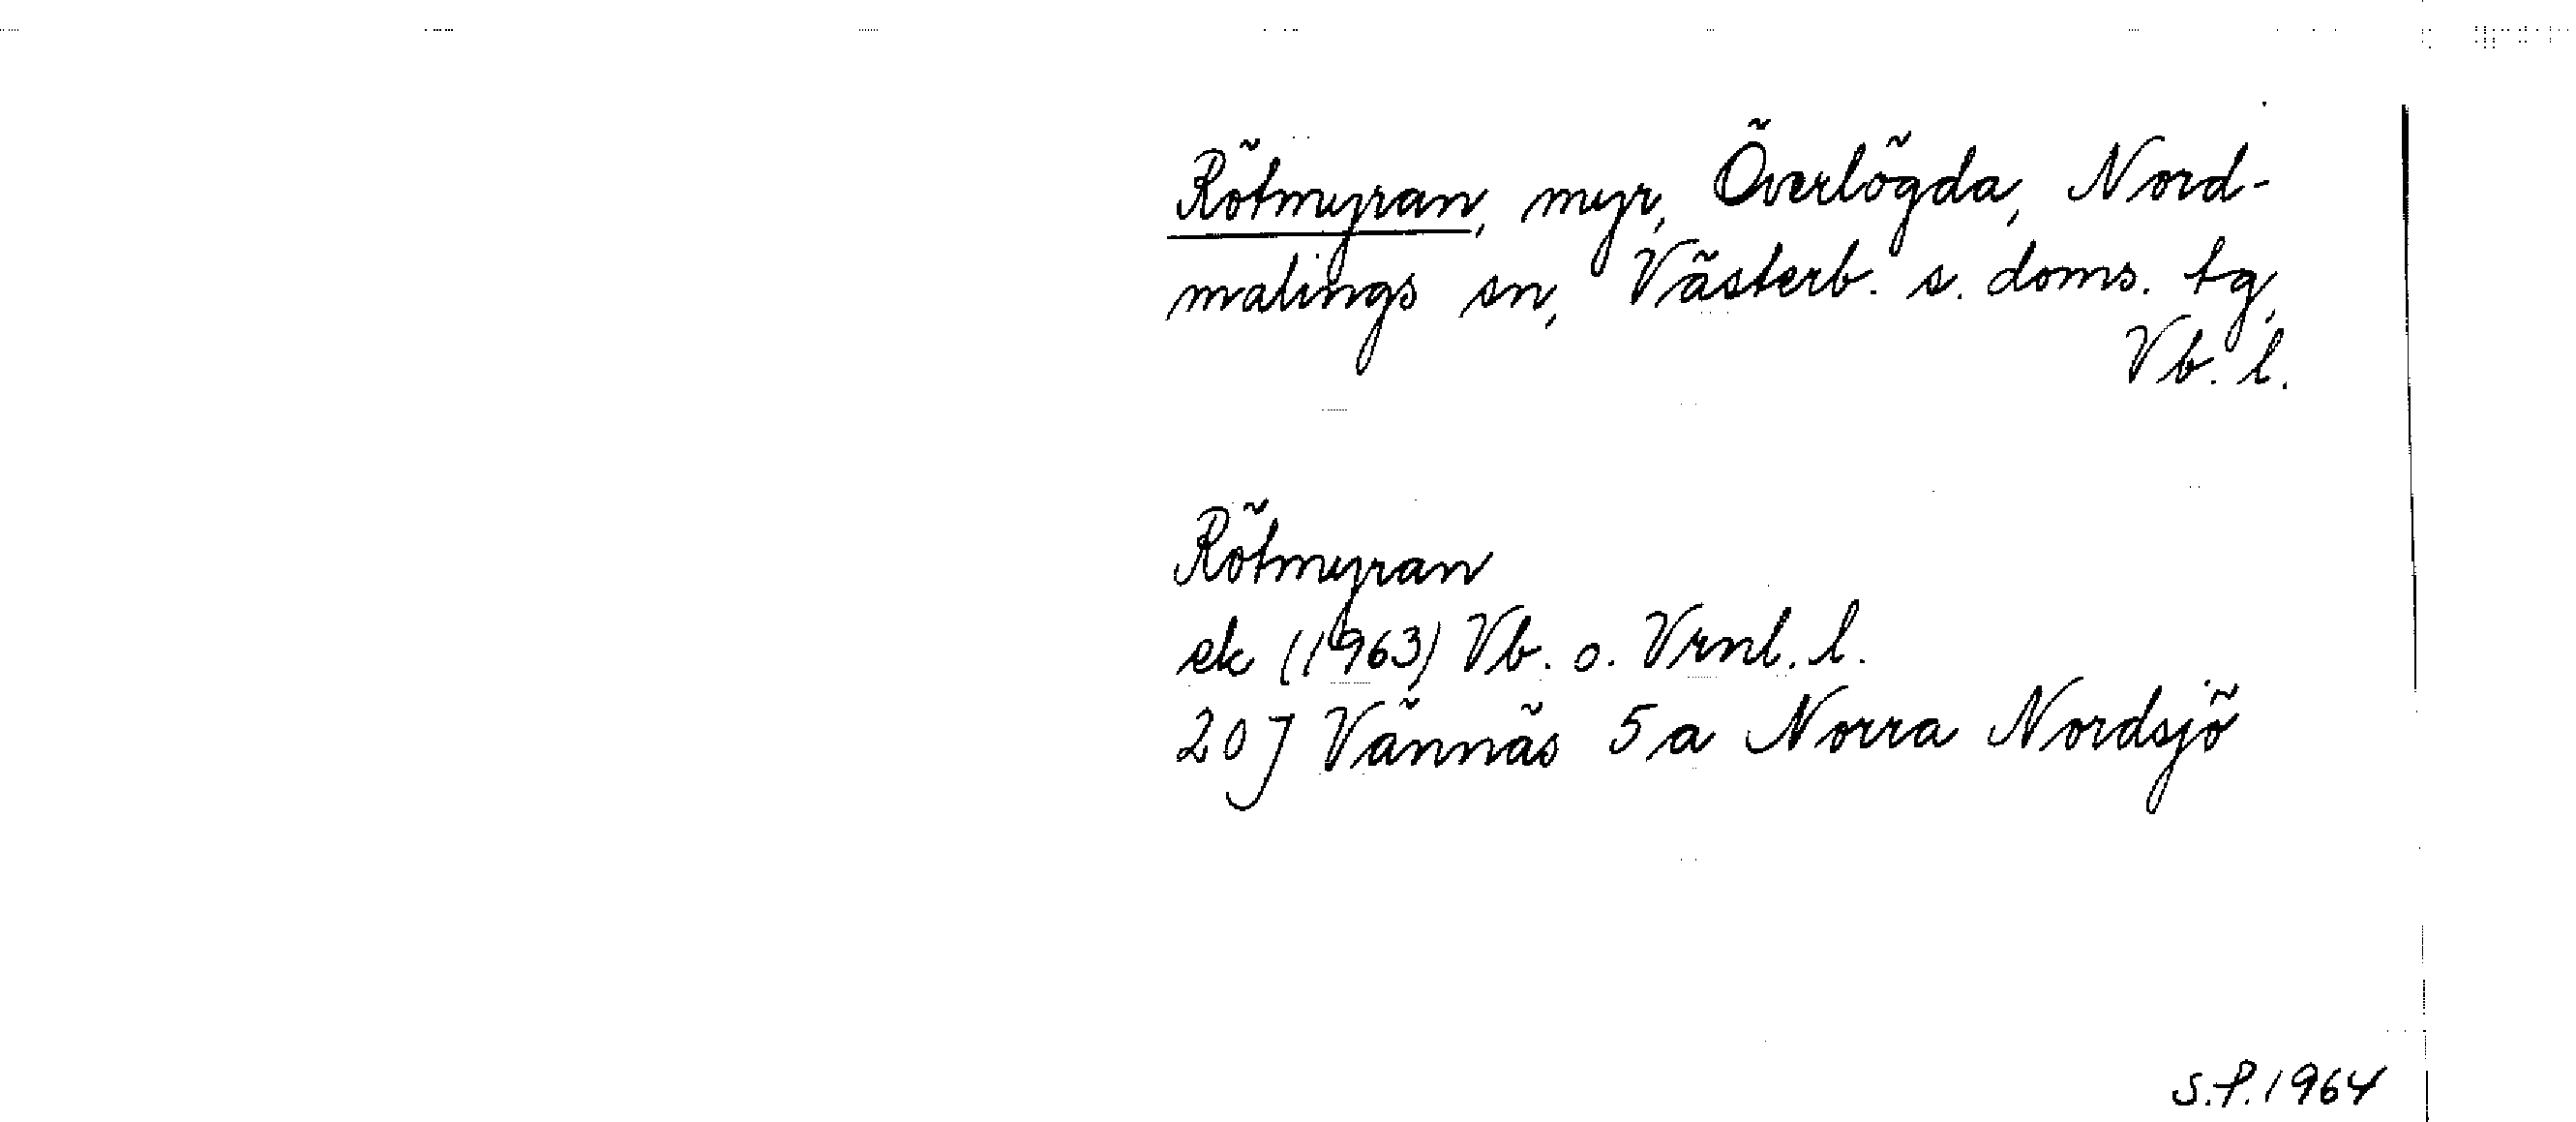 Rötmyran, myr, Överlögda, Nord-
malings sn, Västerb. s. doms. tg,
Vb. l.
Rötmyran
ek (1963) Vb. o. Vrnl. l.
20 J Vännäs 5 a Norra Nordsjö
S.P. 1964